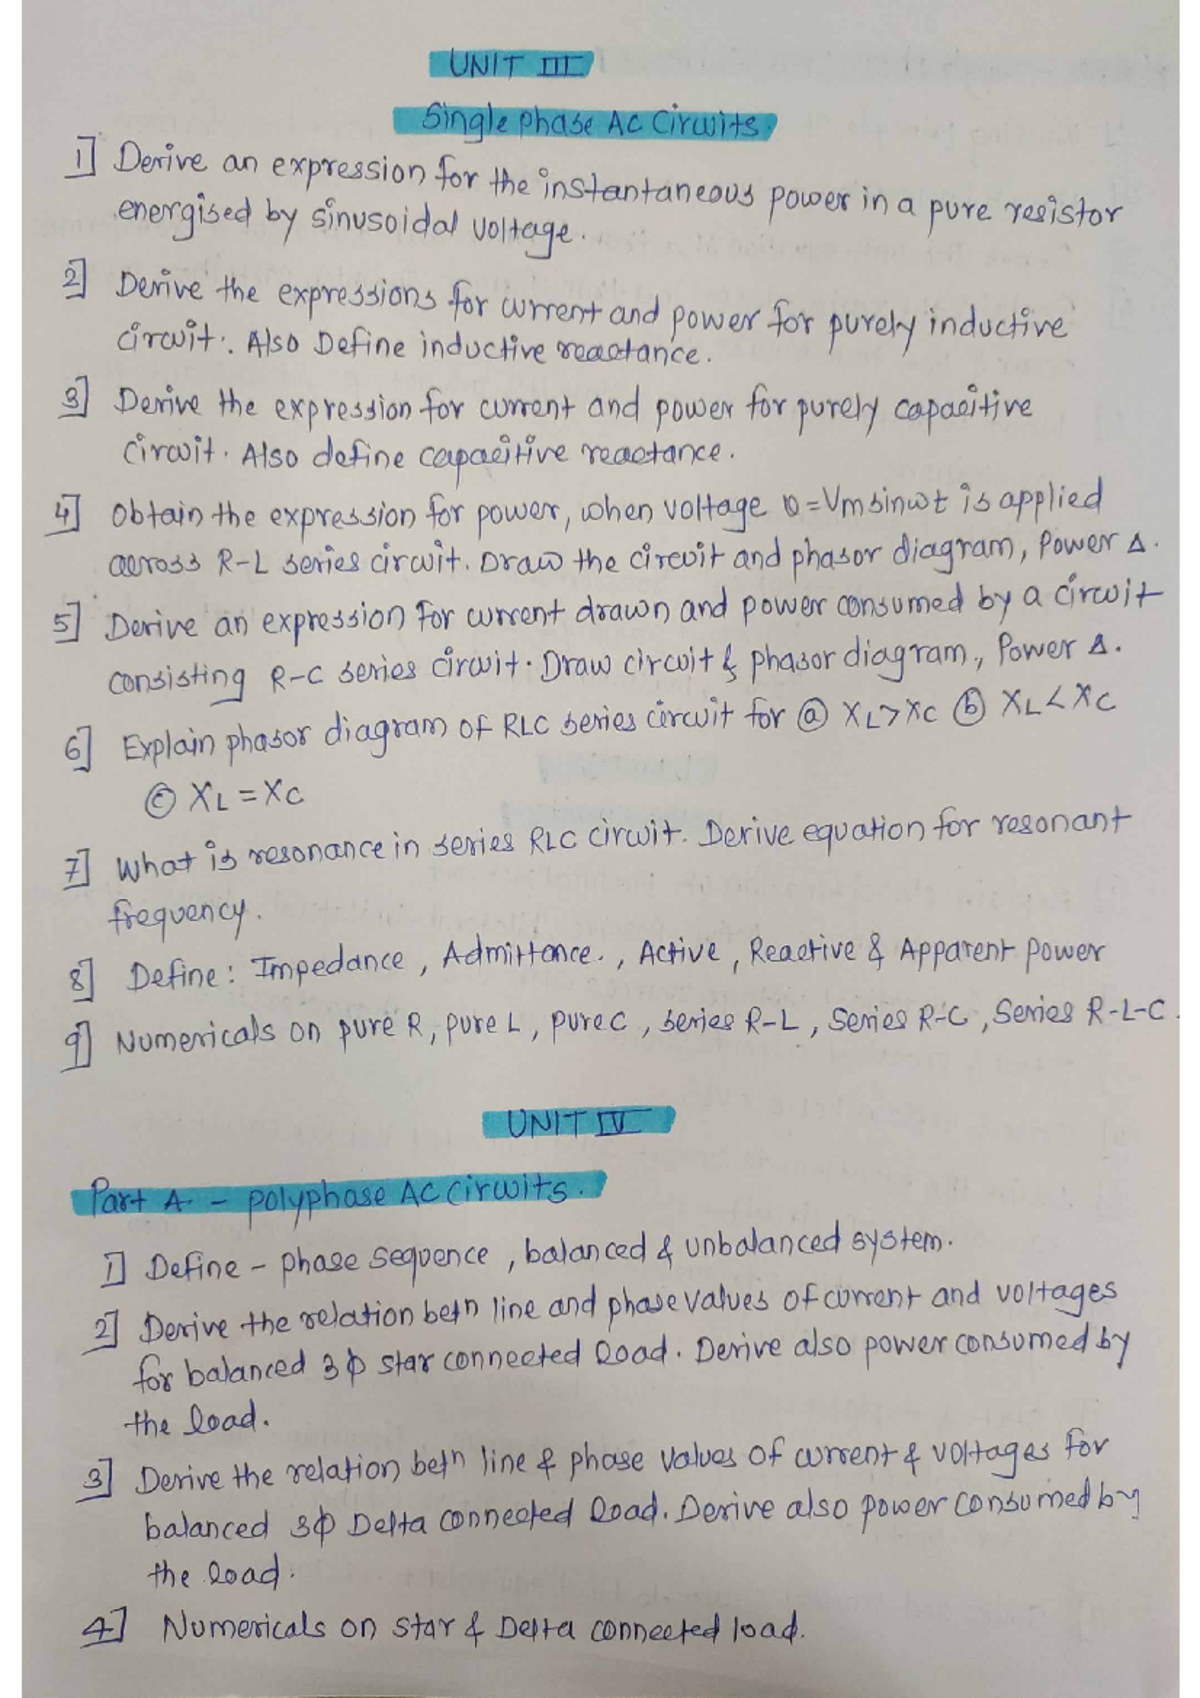 UNIT III
Single phase AC Circuits.
1] Derive an expression for the instantaneous power in a pure resistor
energised by sinusoidal voltage.
2] Derive the expressions for current and power for purely inductive
circuit. Also Define inductive reactance.
3] Derive the expression for current and power for purely capacitive
circuit. Also define capacitive reactance.
4] Obtain the expression for power, when voltage v=Vmsinωt is applied
across R-L series circuit. Draw the circuit and phasor diagram, Power Δ.
5] Derive an expression for current drawn and power consumed by a circuit
consisting R-C series circuit. Draw circuit & phasor diagram, Power Δ.
6] Explain phasor diagram of RLC series circuit for ⓐ XL>XC ⓑ XL<XC
ⓒ XL=XC
7] What is resonance in series RLC circuit. Derive equation for resonant
frequency.
8] Define: Impedance, Admittance., Active, Reactive & Apparent power
9] Numericals on pure R, pure L, pure C, series R-L, Series R-C, Series R-L-C.
UNIT IV
Part A. - Polyphase AC Circuits.
1] Define - phase sequence, balanced & unbalanced system.
2] Derive the relation betn line and phase values of current and voltages
for balanced 3ϕ star connected load. Derive also power consumed by
the load.
3] Derive the relation betn line & phase values of current & voltages for
balanced 3ϕ Delta connected load. Derive also power consumed by
the load.
4] Numericals on star & Delta connected load.